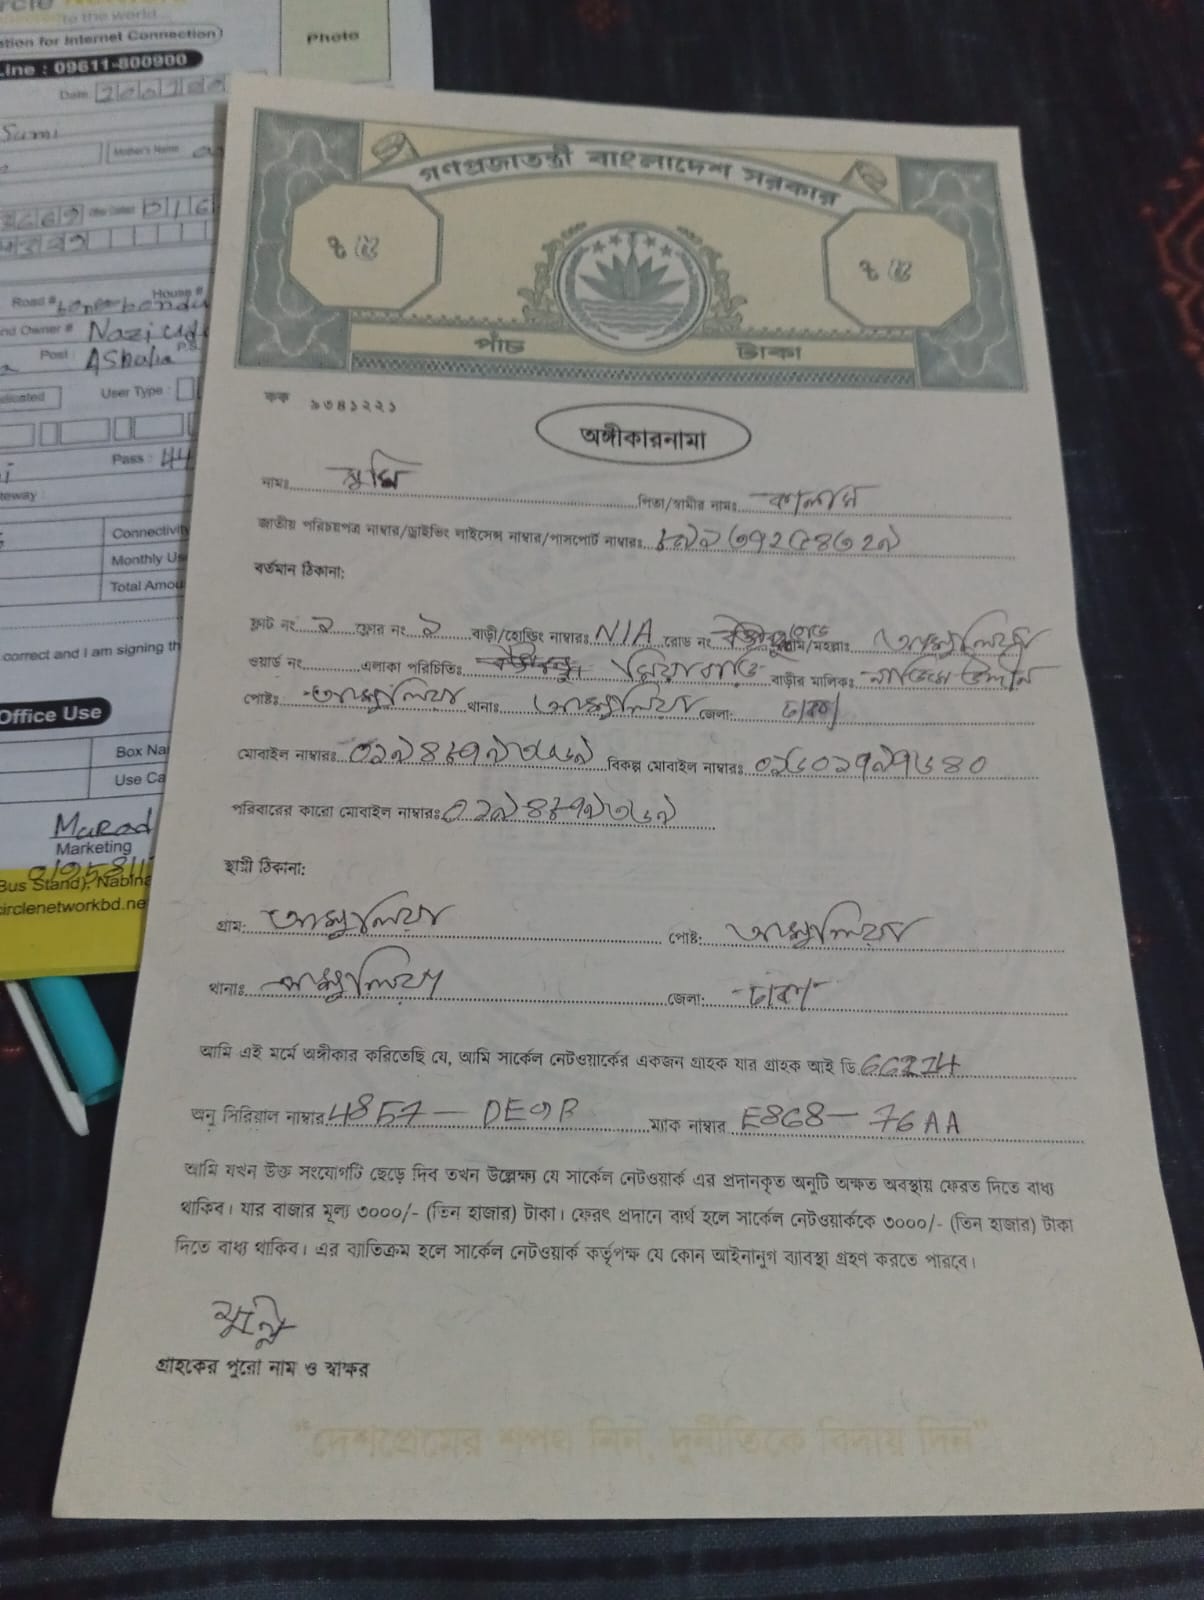 to the world...
ation for Internet Connection)
Line : 09611-800900
Photo
Date
Sumi
Mother's Name
Road #
House #
nd Owner # Nazi
Post : Ashulia P.S
User Type :
Pass : 44
teway :
Connectivity
Monthly Us
Total Amou
correct and I am signing th
Office Use
Box Na
Use Ca
Marad
Marketing
Bus Stand), Nabina
circlenetworkbd.ne
গণপ্রজাতন্ত্রী বাংলাদেশ সরকার
৳ ৫
৳ ৫
পাঁচ টাকা
কক ৯৩৪১২২১
অঙ্গীকারনামা
নামঃ সুমি পিতা/স্বামীর নামঃ কালাম
জাতীয় পরিচয়পত্র নাম্বার/ড্রাইভিং লাইসেন্স নাম্বার/পাসপোর্ট নাম্বারঃ
বর্তমান ঠিকানা:
ফ্লাট নং ২ ফ্লোর নং ২ বাড়ী/হোল্ডিং নাম্বারঃ N/A রোড নং গ্রাম/মহল্লাঃ আশুলিয়া
ওয়ার্ড নং এলাকা পরিচিতিঃ বাড়ীর মালিকঃ নাজিম উদ্দীন
পোষ্টঃ আশুলিয়া থানাঃ আশুলিয়া জেলা: ঢাকা
মোবাইল নাম্বারঃ বিকল্প মোবাইল নাম্বারঃ
পরিবারের কারো মোবাইল নাম্বারঃ
স্থায়ী ঠিকানা:
গ্রাম: আশুলিয়া পোষ্ট: আশুলিয়া
থানাঃ আশুলিয়া জেলা: ঢাকা
আমি এই মর্মে অঙ্গীকার করিতেছি যে, আমি সার্কেল নেটওয়ার্কের একজন গ্রাহক যার গ্রাহক আই ডি
অনু সিরিয়াল নাম্বার 4857 - DE9B ম্যাক নাম্বার E868 - 76AA
আমি যখন উক্ত সংযোগটি ছেড়ে দিব তখন উল্লেক্ষ্য যে সার্কেল নেটওয়ার্ক এর প্রদানকৃত অনুটি অক্ষত অবস্থায় ফেরত দিতে বাধ্য
থাকিব। যার বাজার মূল্য ৩০০০/- (তিন হাজার) টাকা। ফেরৎ প্রদানে ব্যর্থ হলে সার্কেল নেটওয়ার্ককে ৩০০০/- (তিন হাজার) টাকা
দিতে বাধ্য থাকিব। এর ব্যাতিক্রম হলে সার্কেল নেটওয়ার্ক কর্তৃপক্ষ যে কোন আইনানুগ ব্যাবস্থা গ্রহণ করতে পারবে।
গ্রাহকের পুরো নাম ও স্বাক্ষর
"দেশপ্রেমের শপথ নিন, দুর্নীতিকে বিদায় দিন"